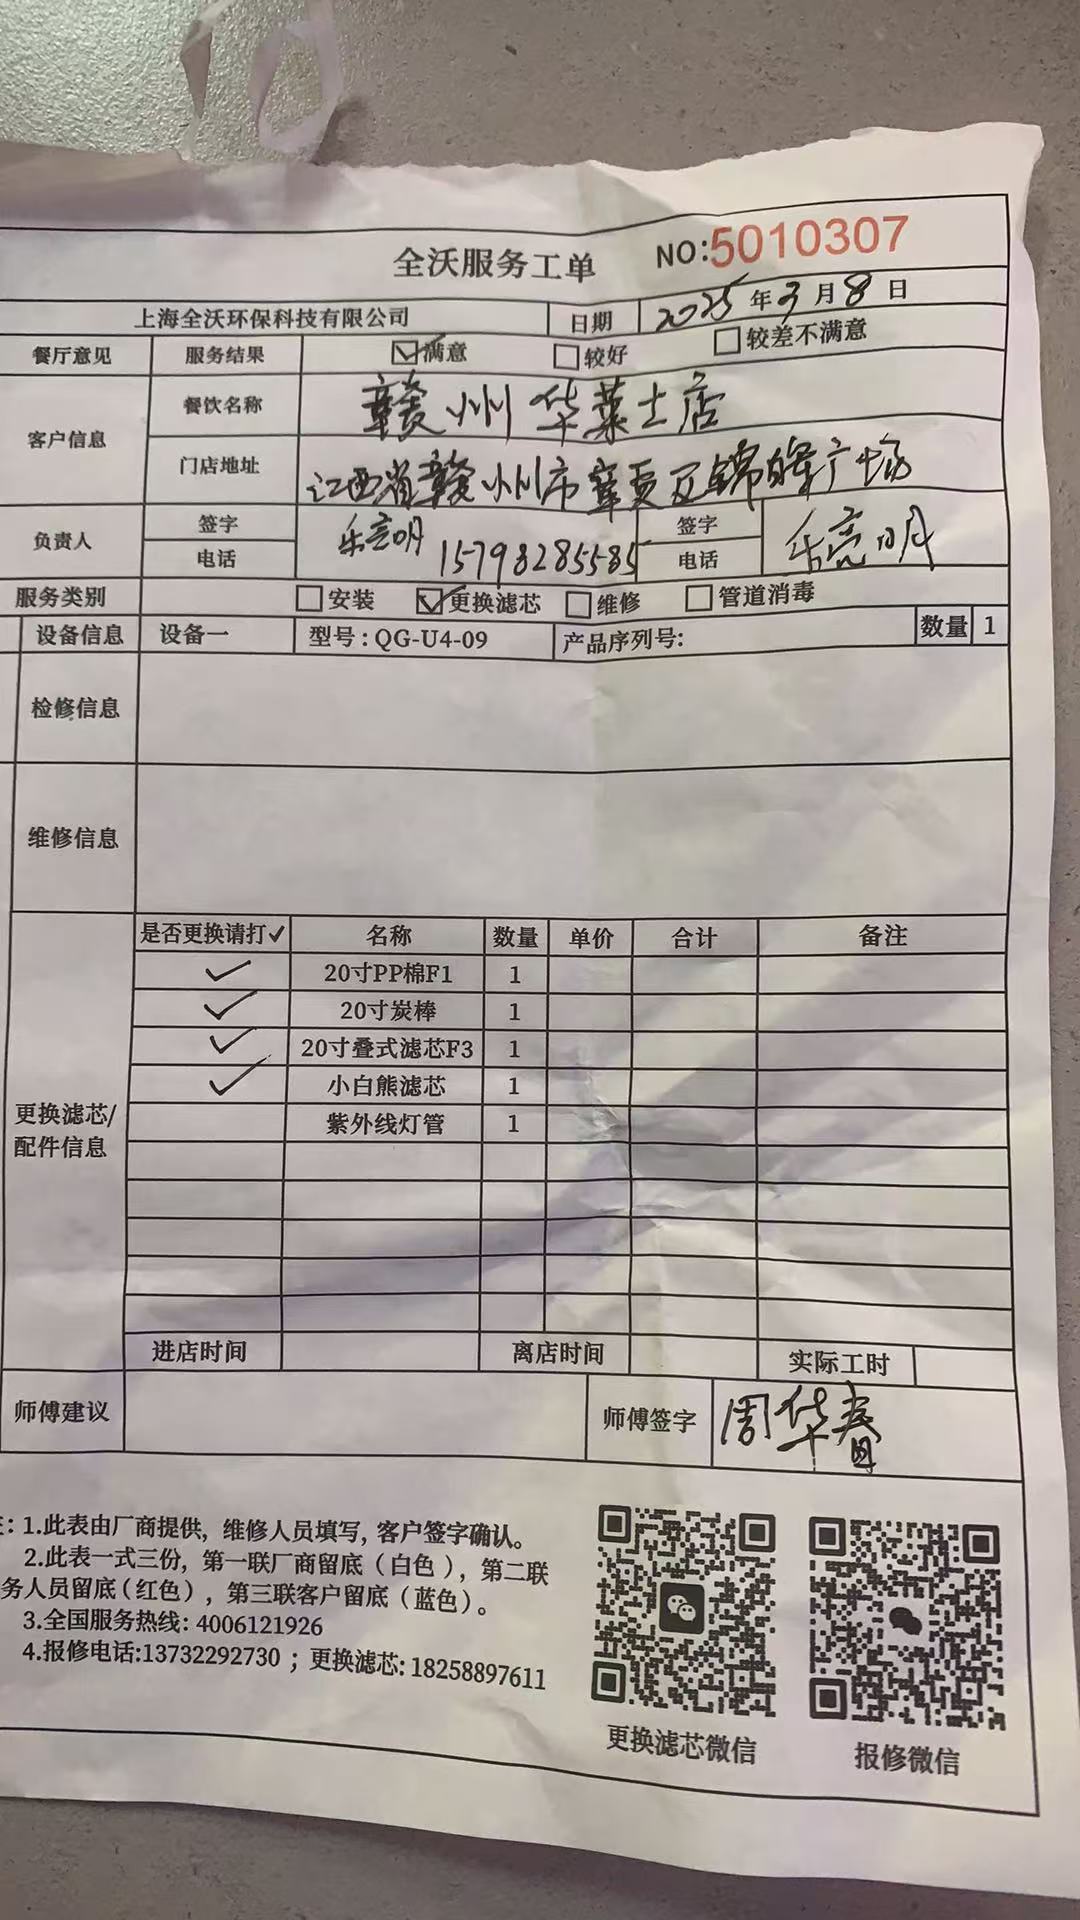 全沃服务工单 NO:5010307
上海全沃环保科技有限公司 日期 2025年3月8日
餐厅意见 服务结果 ☑满意 □较好 □较差不满意
客户信息 餐饮名称 赣州华莱士店
门店地址 江西省赣州市章贡区锦峰广场
负责人 签字 乐亮明 签字 乐亮明
电话 15798285585 电话
服务类别 □安装 ☑更换滤芯 □维修 □管道消毒
设备信息 设备一 型号:QG-U4-09 产品序列号: 数量 1
检修信息
维修信息
更换滤芯/配件信息
是否更换请打✓ 名称 数量 单价 合计 备注
✓ 20寸PP棉F1 1
✓ 20寸炭棒 1
✓ 20寸叠式滤芯F3 1
✓ 小白熊滤芯 1
紫外线灯管 1
进店时间 离店时间 实际工时
师傅建议 师傅签字 周华春
:1.此表由厂商提供, 维修人员填写, 客户签字确认。
2.此表一式三份, 第一联厂商留底(白色), 第二联
务人员留底(红色), 第三联客户留底(蓝色)。
3.全国服务热线: 4006121926
4.报修电话:13732292730 ; 更换滤芯: 18258897611
更换滤芯微信 报修微信